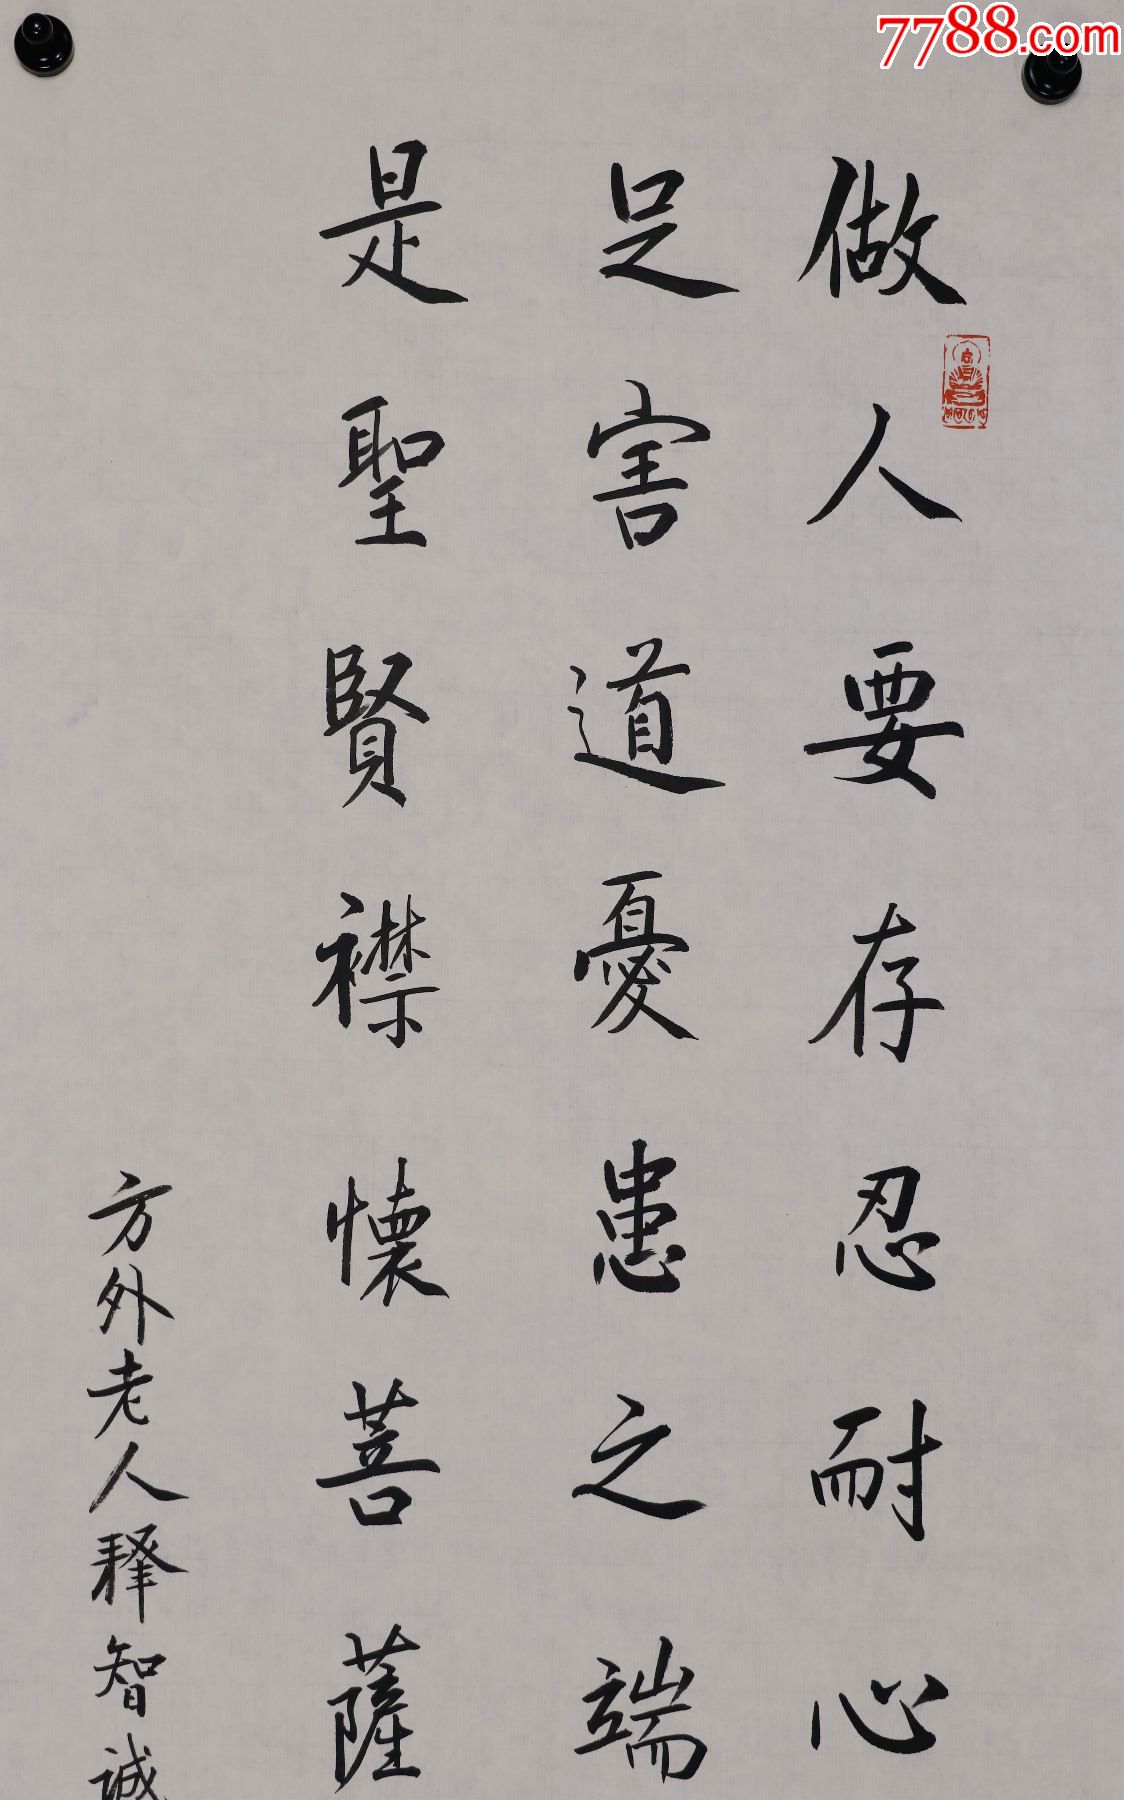 做人要存忍耐心
足害道憂患之端
是聖賢襟懷菩薩
方外老人释智诚
7788.com